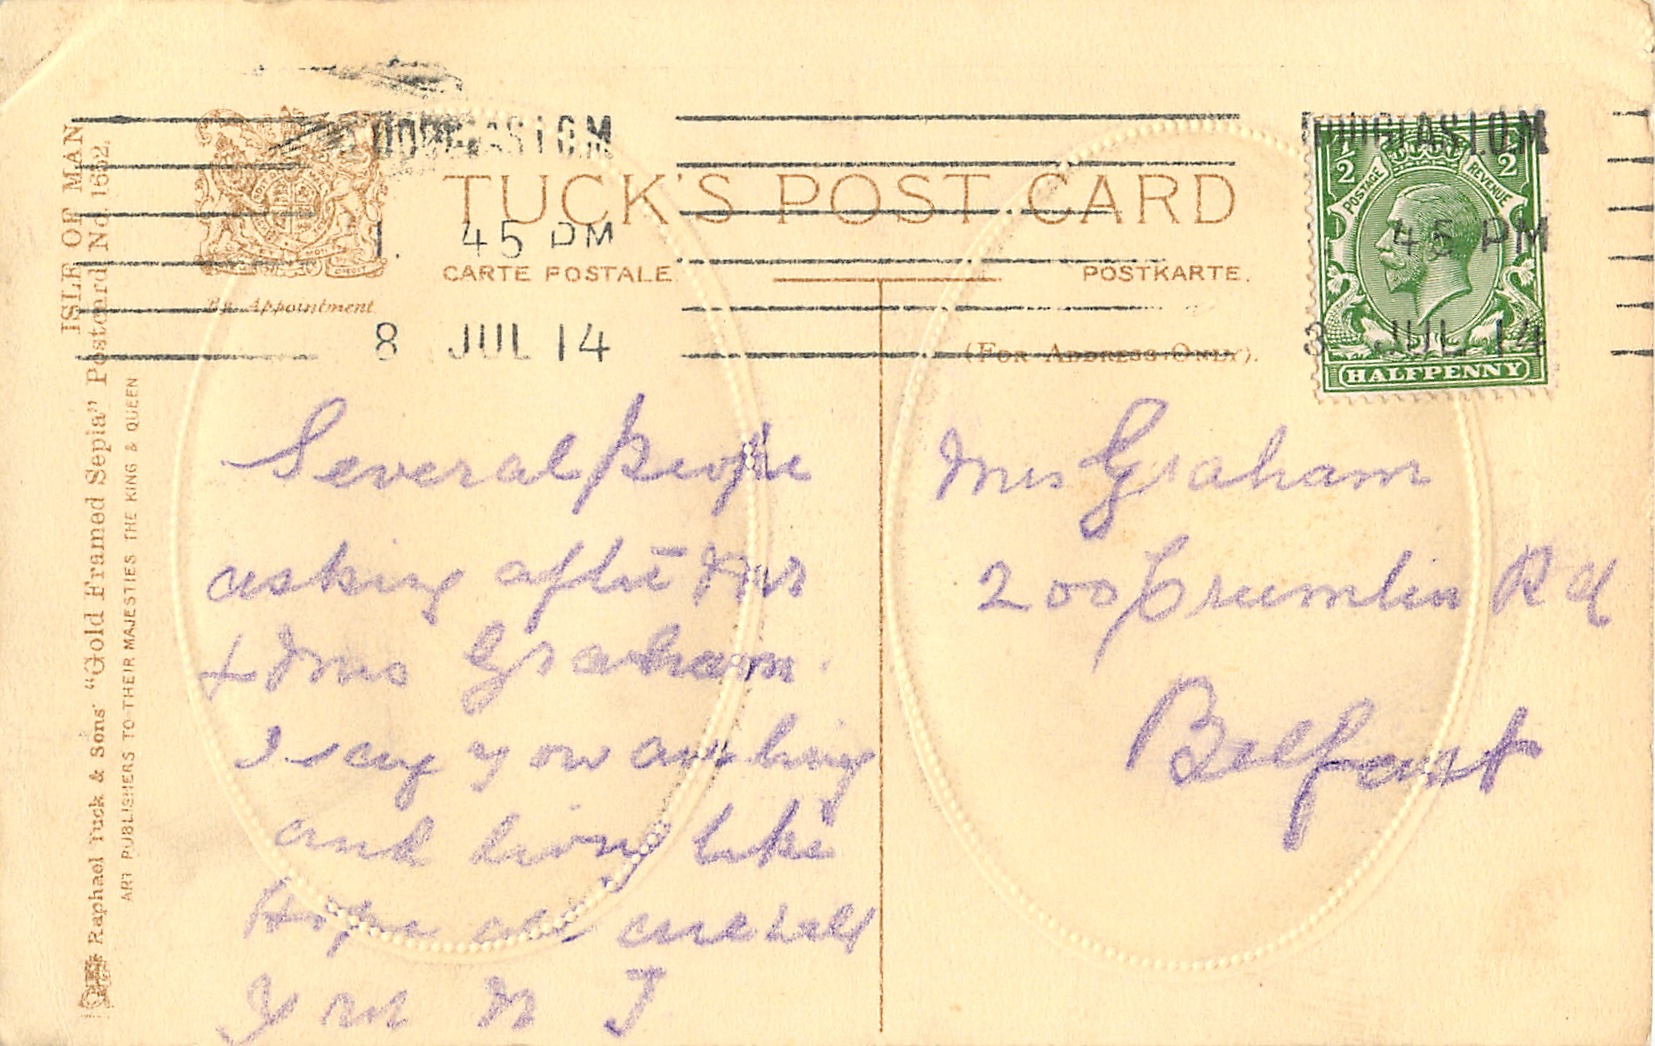 DOUGLAS I.O.M
45 PM
8 JUL 14
TUCK'S POST CARD
CARTE POSTALE.
POSTKARTE.
By Appointment
(FOR ADDRESS ONLY).
DOUGLAS I.O.M
45 PM
JUL 14
1/2
1/2
POSTAGE
REVENUE
HALFPENNY
ISLE OF MAN
Raphael Tuck & Sons' "Gold Framed Sepia" Postcard No. 1652.
ART PUBLISHERS TO THEIR MAJESTIES THE KING & QUEEN
Several people
asking after Mr
& Mrs Graham.
I say you are
and living like
Hope all are well
Mrs Graham
200 Crumlin Rd
Belfast